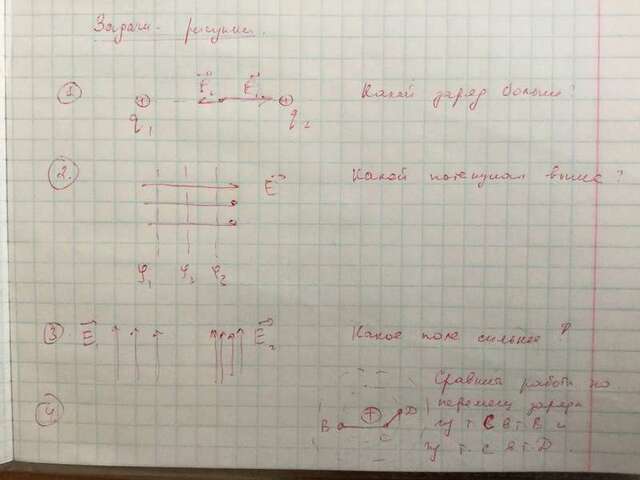 Задачи - рисунки.
1 E₂ E₁ Какой заряд больше?
q₁ q₂
2. E Какой потенциал выше?
φ₁ φ₃ φ₂
3. E₁ E₂ Какое поле сильнее?
4 Сравнить работы по
перемещ заряда
B C D из т. C в т. B и
из т. C в т. D.